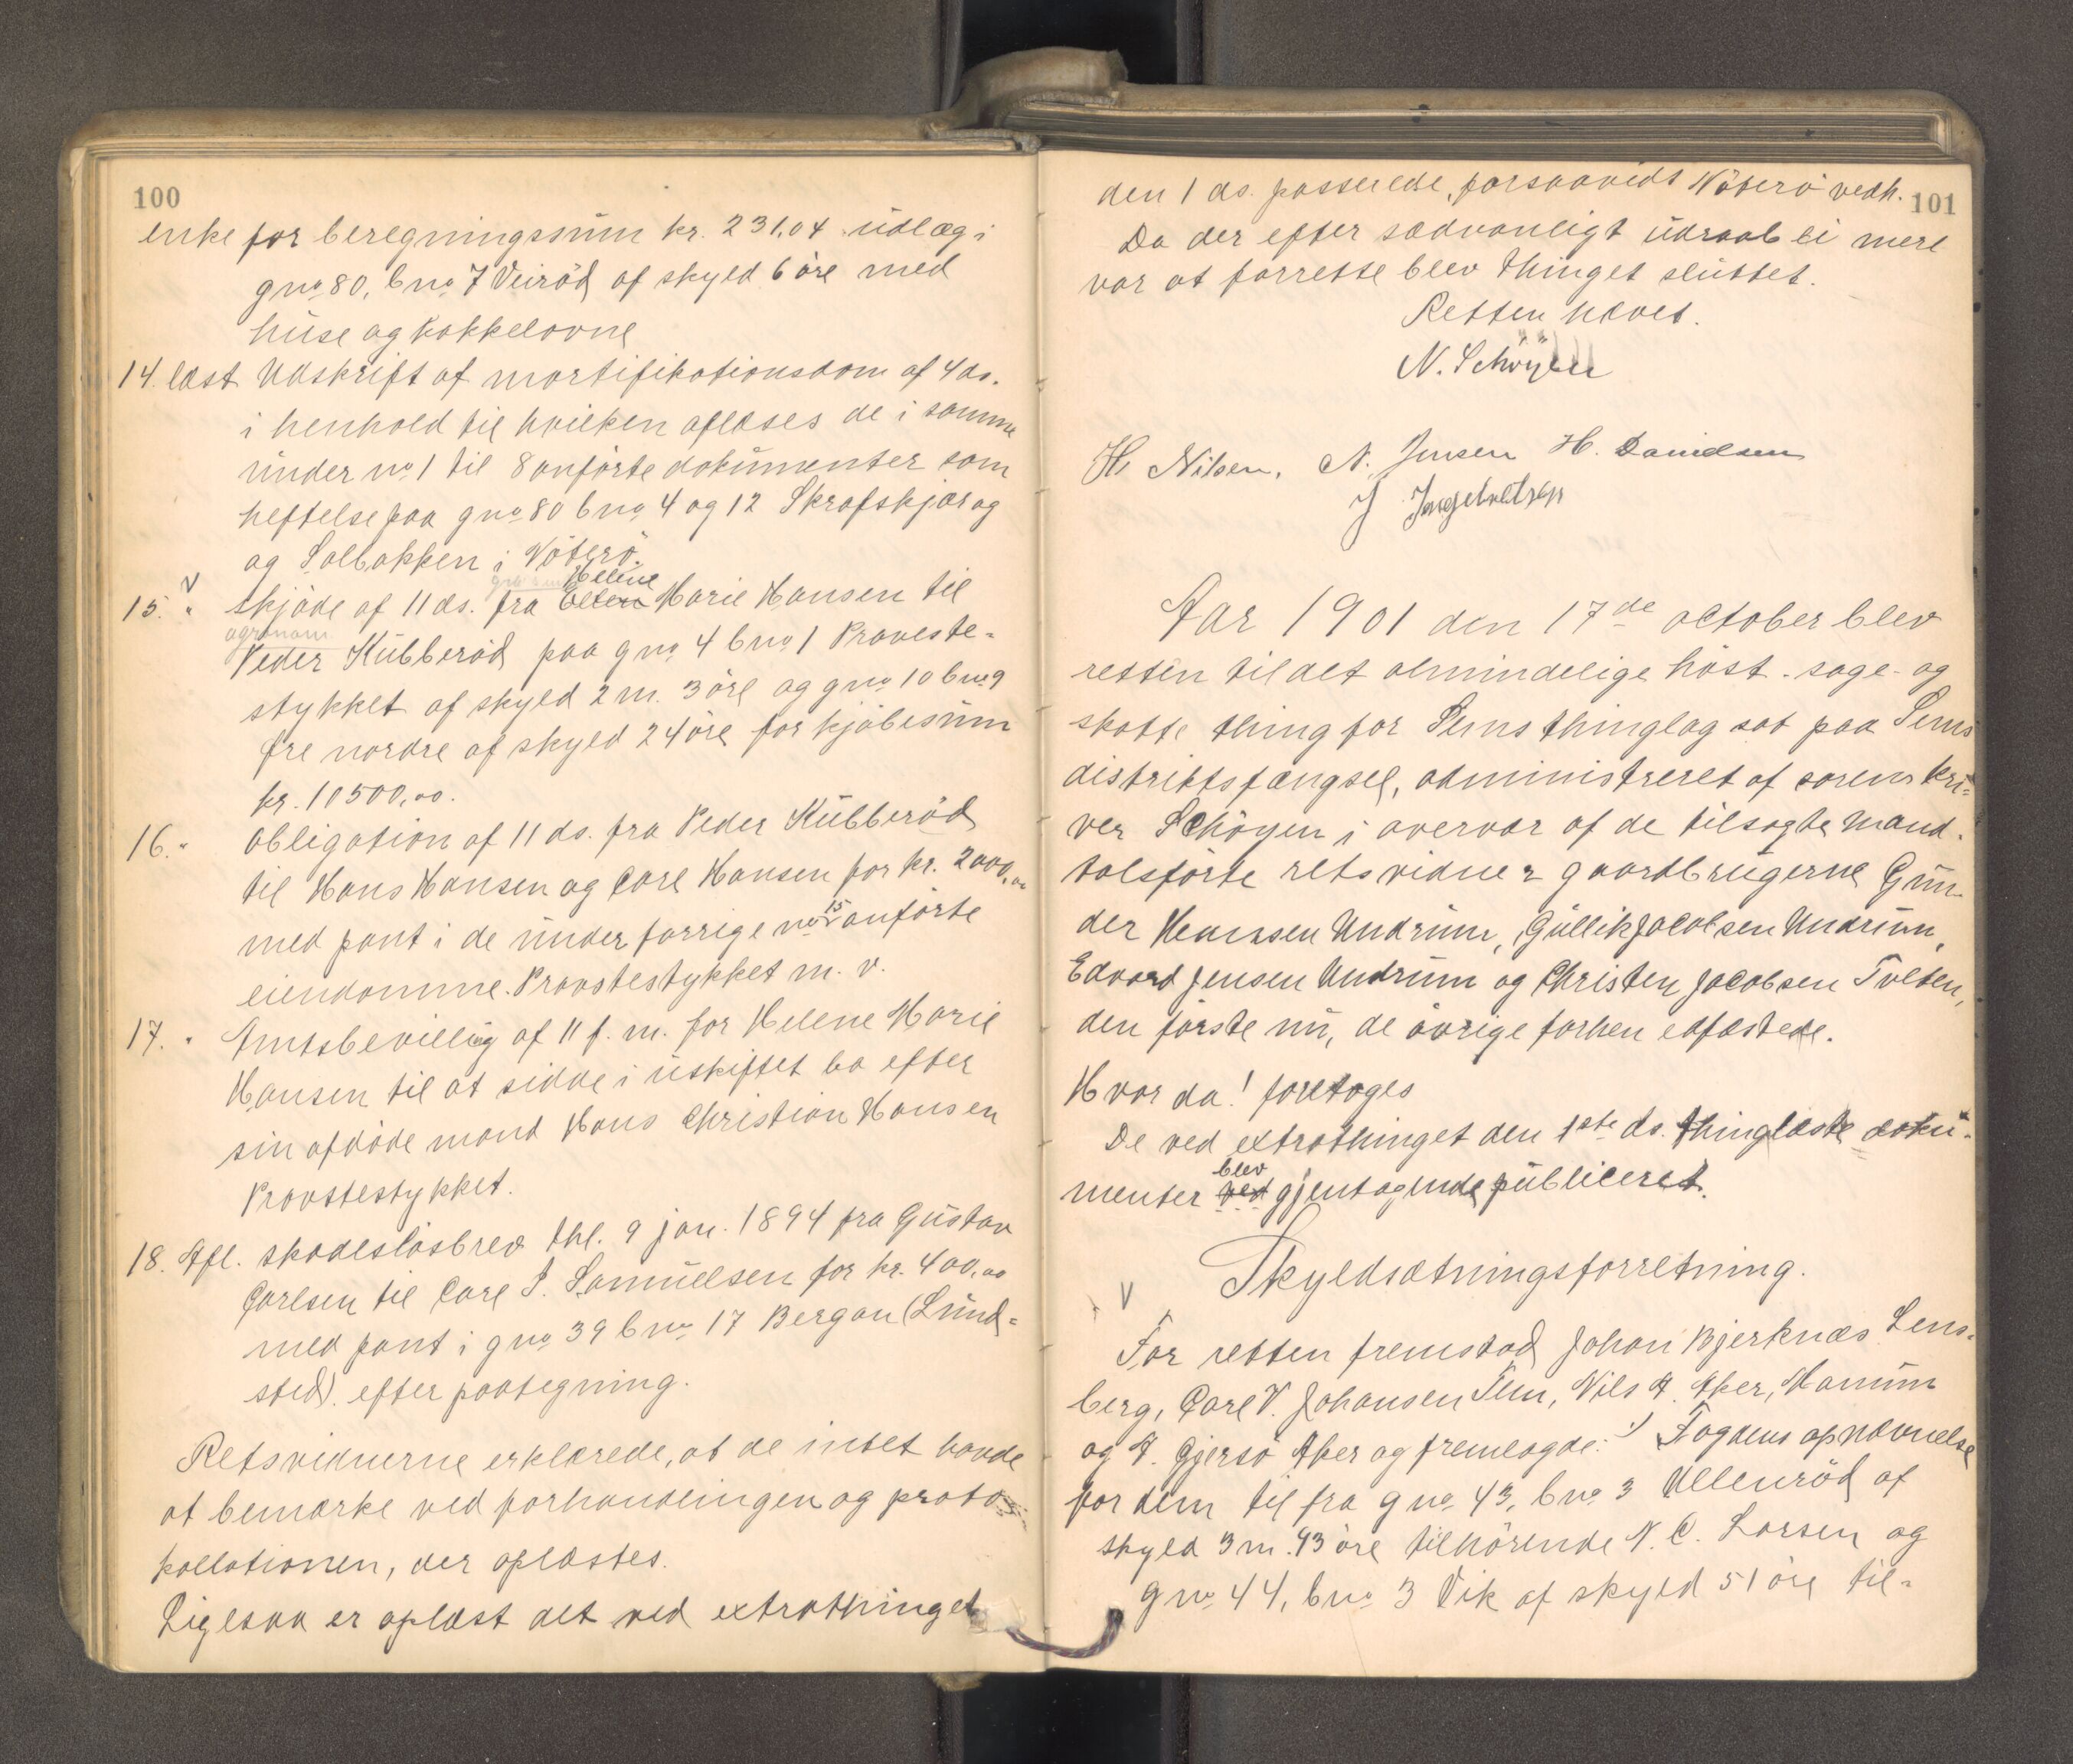 100
enke for beregningssum kr. 231,04 udlæg i
gno 80, bno 7 Veiröd af skyld 6 öre med
huse og kakkelovne
14. læst Udskrift af mortifikationsdom af 4 ds.
i henhold til hvilken aflæses de i samme
under no 1 til 8 anförte dokumenter som
heftelse paa gno 80 bno 4 og 12 Skrafskjær og
og Solbakken i Nöterö.
Helene
15. " Skjöde af 11 ds. fra Ellen Marie Hansen til
agronom
Peder Kubberöd paa gno 4 bno 1 Proveste-
stykket af skyld 2 m. 3 öre og gno 10 bno 9
Øre nordre af skyld 24 öre for kjöbesum
kr. 10500,00.
16. " Obligation af 11 ds. fra Peder Kubberöd
til Hans Hansen og Carl Hansen for kr. 2000,00
med pant i de under forrige no 15 anförte
eiendomme. Provstestykket m. v.
17. " Amtsbevilling af 11 f. m. for Helene Marie
Hansen til at sidde i uskiftet bo efter
sin afdöde mand Hans Christian Hansen
Provstestykket.
18. Afl. skadeslösbrev thl. 9 jan. 1894 fra Gustav
Carlsen til Carl S. Samuelsen for kr. 400,00
med pant i gno 39 bno 17 Bergan (Lund-
sted) efter paategning.
Retsvidnerne erklærede, at de intet havde
at bemærke ved forhandlingen og proto-
kollationen, der oplæstes.
Ligesaa er oplæst det ved extrathinget
101
den 1 ds. passerede, forsaavidt Nöterö vedk.
Da der efter sædvanligt udraab ei mere
var at forrette blev thinget sluttet.
Retten hævet.
N. Schöyen
H. Nilsen. N. Jensen H. Danielsen
J Ingebretsen
Aar 1901 den 17de october blev
retten til det almindelige höst- sage- og
skatte thing for Sems thinglag sat paa Sems
distriktsfængsel, administreret af sorenskri-
ver Schöyen i overvær af de tilsagte mand-
talsförte retsvidner gaardbrugerne Gun-
der Hansen Undrum, Gullik Jacobsen Undrum,
Edvard Jensen Undrum og Christen Jacobsen Tveten,
den förste nu, de övrige forhen edfæstede.
Hvor da! foretoges
De ved extrathinget den 1ste ds. thinglæste doku-
blev
menter ved gjentagende publiceret.
Skyldsætningsforretning.
For retten fremstod Johan Bjerknæs Lens-
berg, Carl V. Johansen Sem, Nils A. Aker, Manum
og A. Gjersö Aker og fremlagde: 1) Fogdens opnævnelse
for dem til fra gno 43, bno 3 Ullenröd af
skyld 3 m. 93 öre tilhörende N. C. Larsen og
gno 44, bno 3 Vik af skyld 51 öre til-